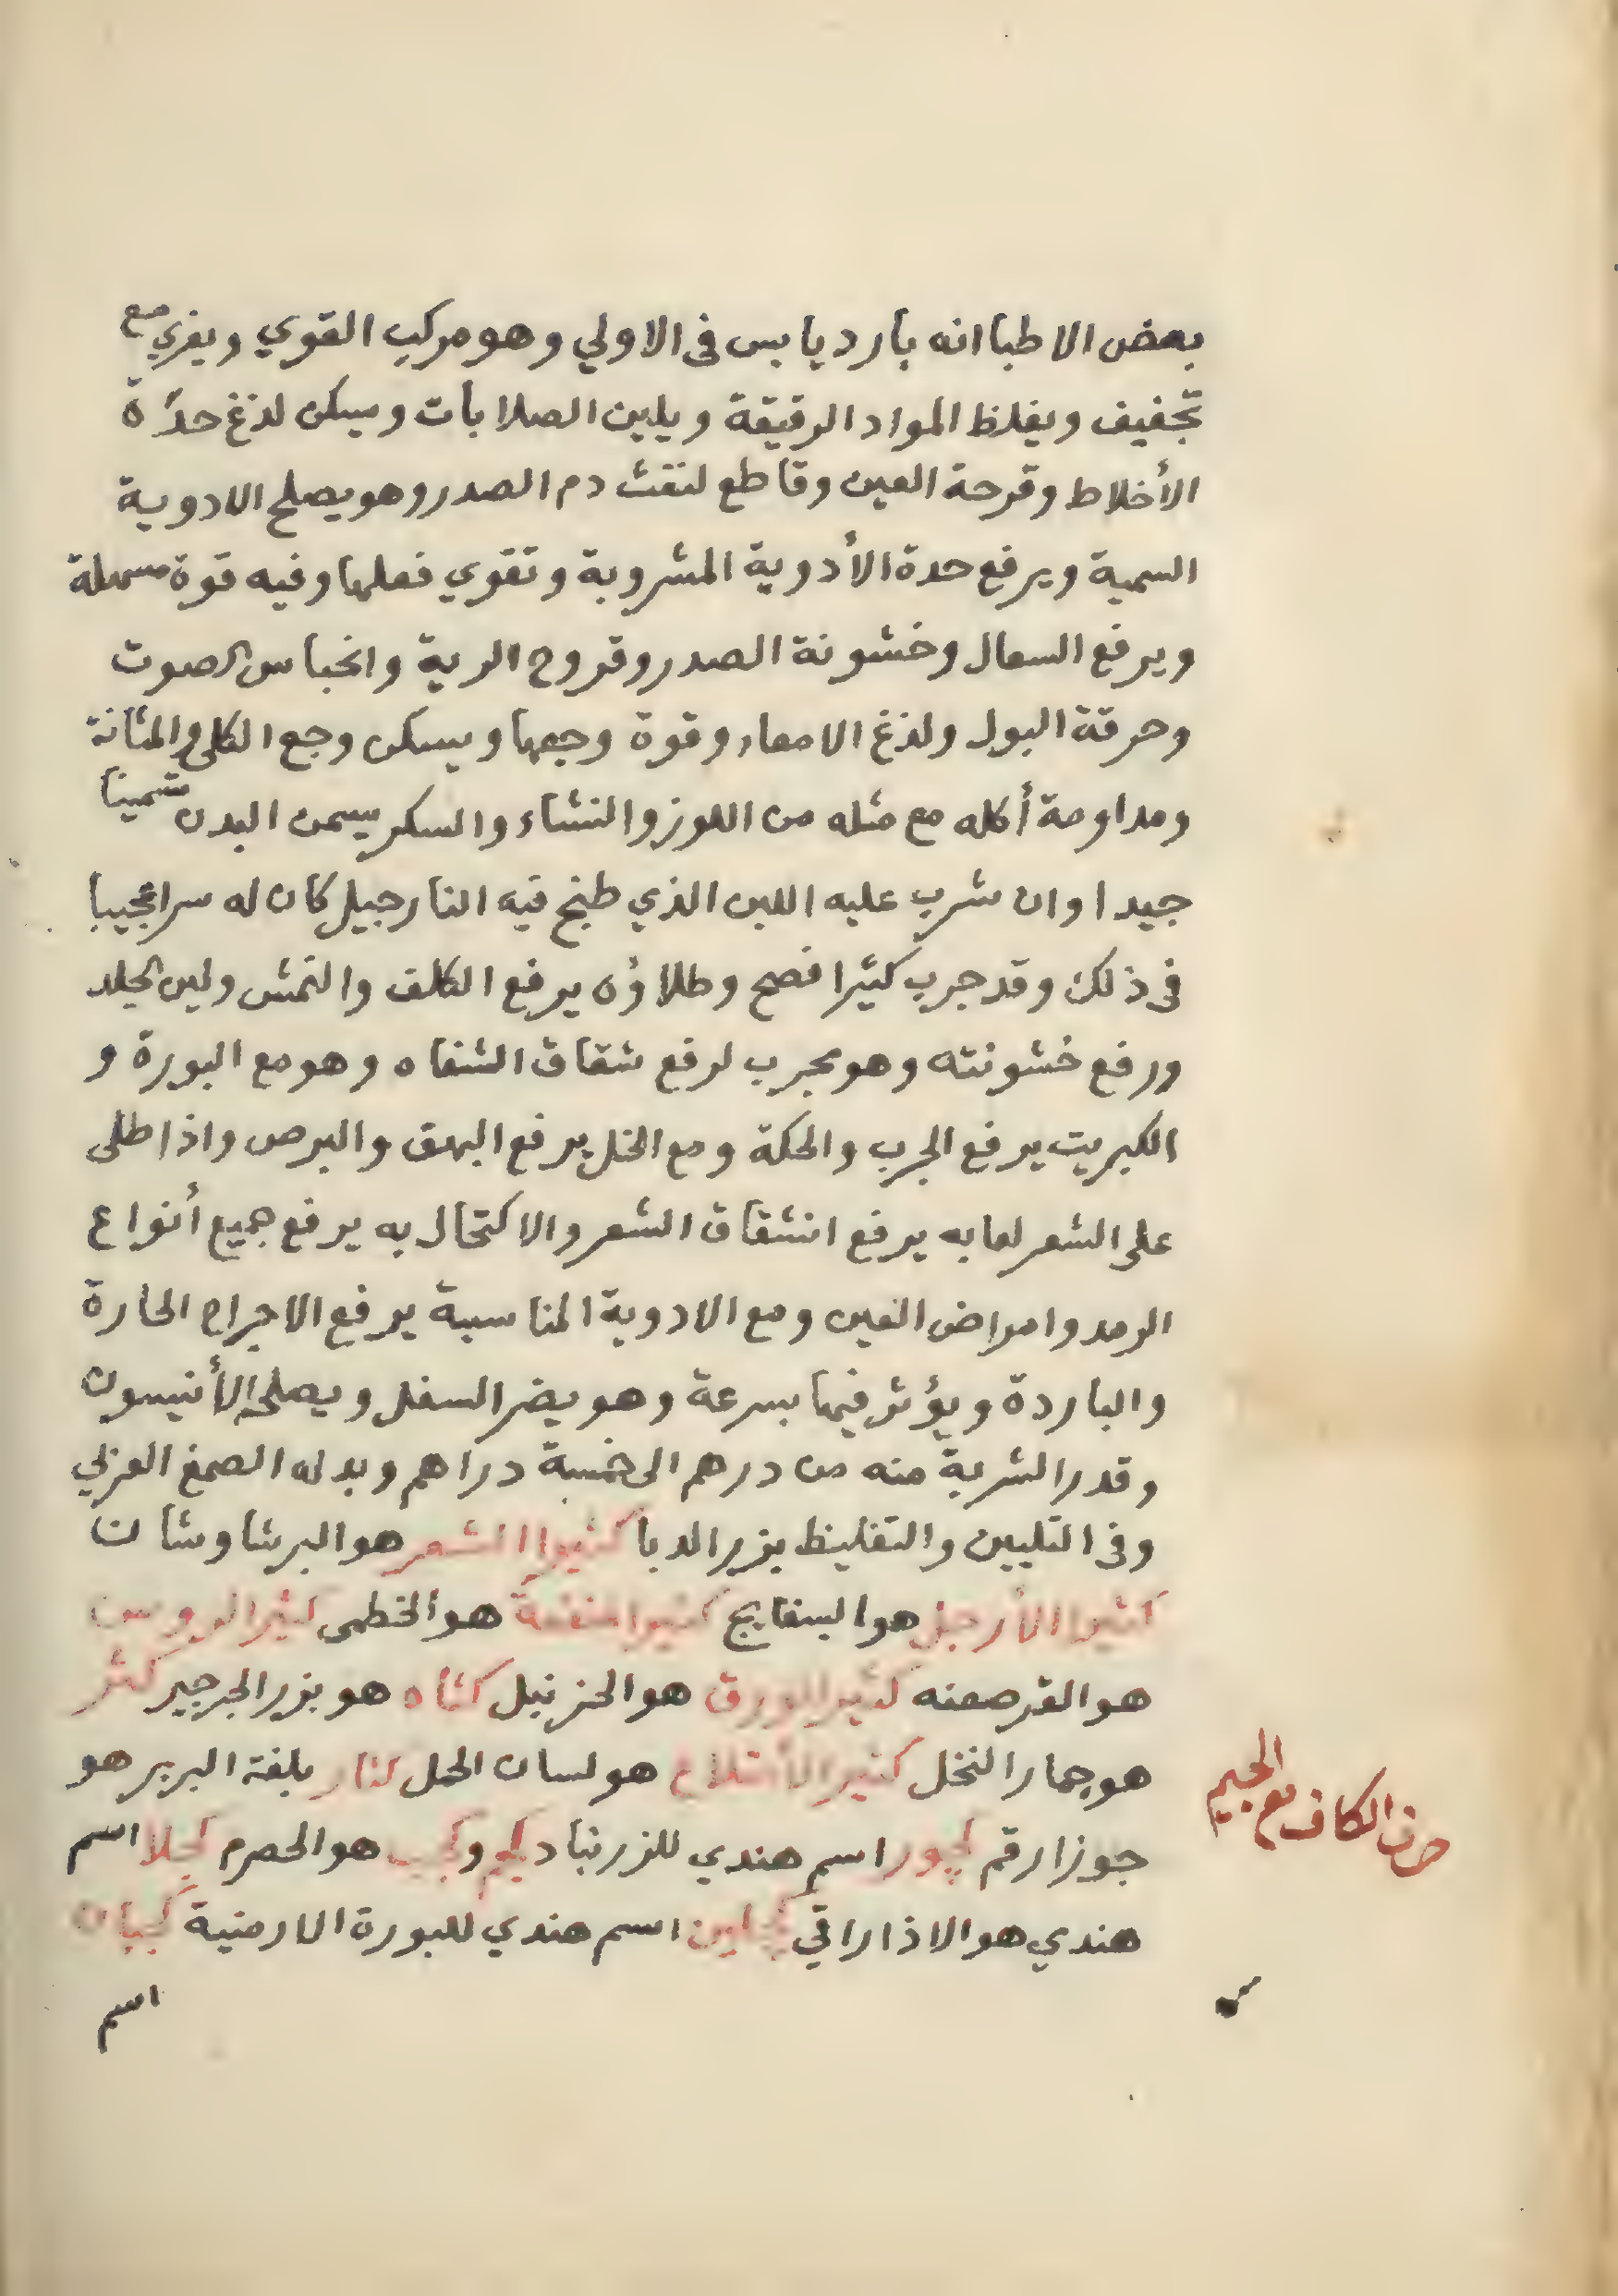 بعض الاطبا انه بارد يابس فى الاولي وهو مركب القوي ويغري مع
تجفيف ويغلظ المواد الرقيقة ويلين الصلابات ويسكن لذغ حدّة
الأخلاط وقرحة العين وقاطع لنفث دم الصدر وهو يصلح الادوية
السمية ويرفع حدة الأدوية المشروبة وتقوي فعلها وفيه قوة مسهلة
ويرفع السعال وخشونة الصدر وقروح الرية وانحباس الصوت
وحرقة البول ولذغ الامعاء وقوة وجعها ويسكن وجع الكلى والمثانة
ومداومة أكله مع مثله من اللوز والنشاء والسكر يسمن البدن تسمينا
جيدا وان شرب عليه اللبن الذي طبخ فيه النارجيل كان له سرا عجيبا
فى ذلك وقد جرب كثيرا فصح وطلاؤه يرفع الكلف والنمش ولين الجلد
ورفع خشونته وهو مجرب لرفع شقاق الشفاه وهو مع البورة و
الكبريت يرفع الجرب والحكة ومع الخل يرفع البهق والبرص واذا طلى
على الشعر لعابه يرفع انشقاق الشعر والاكتحال به يرفع جميع أنواع
الرمد وامراض العين ومع الادوية المناسبة يرفع الاجراح الحارة
والباردة ويؤثر فيها بسرعة وهو يضر السفل ويصلحه الأنيسون
وقدر الشربة منه من درهم الى خمسة دراهم وبدله الصمغ العربي
وفى التليين والتغليظ بزر الدبا كثيرا الشعر هو البرشاوشان
كثير الأرجل هو البسفايج كثيرا هو الخطمى كثير الروس
هو القرصعنه كثير الورق هو الحزنبل كثاه هو بزر الجرجير كثر
هو جمار النخل كثير الأضلاع هو لسان الحمل كثار بلغة البربر هو
جوز ارقم كچور اسم هندي للزرنباد كجم وكجب هو الحصرم كجلا اسم
هندي هو الاذاراقي اسم هندي للبورة الارمنية كجبان
اسم
حرف الكاف مع الجيم